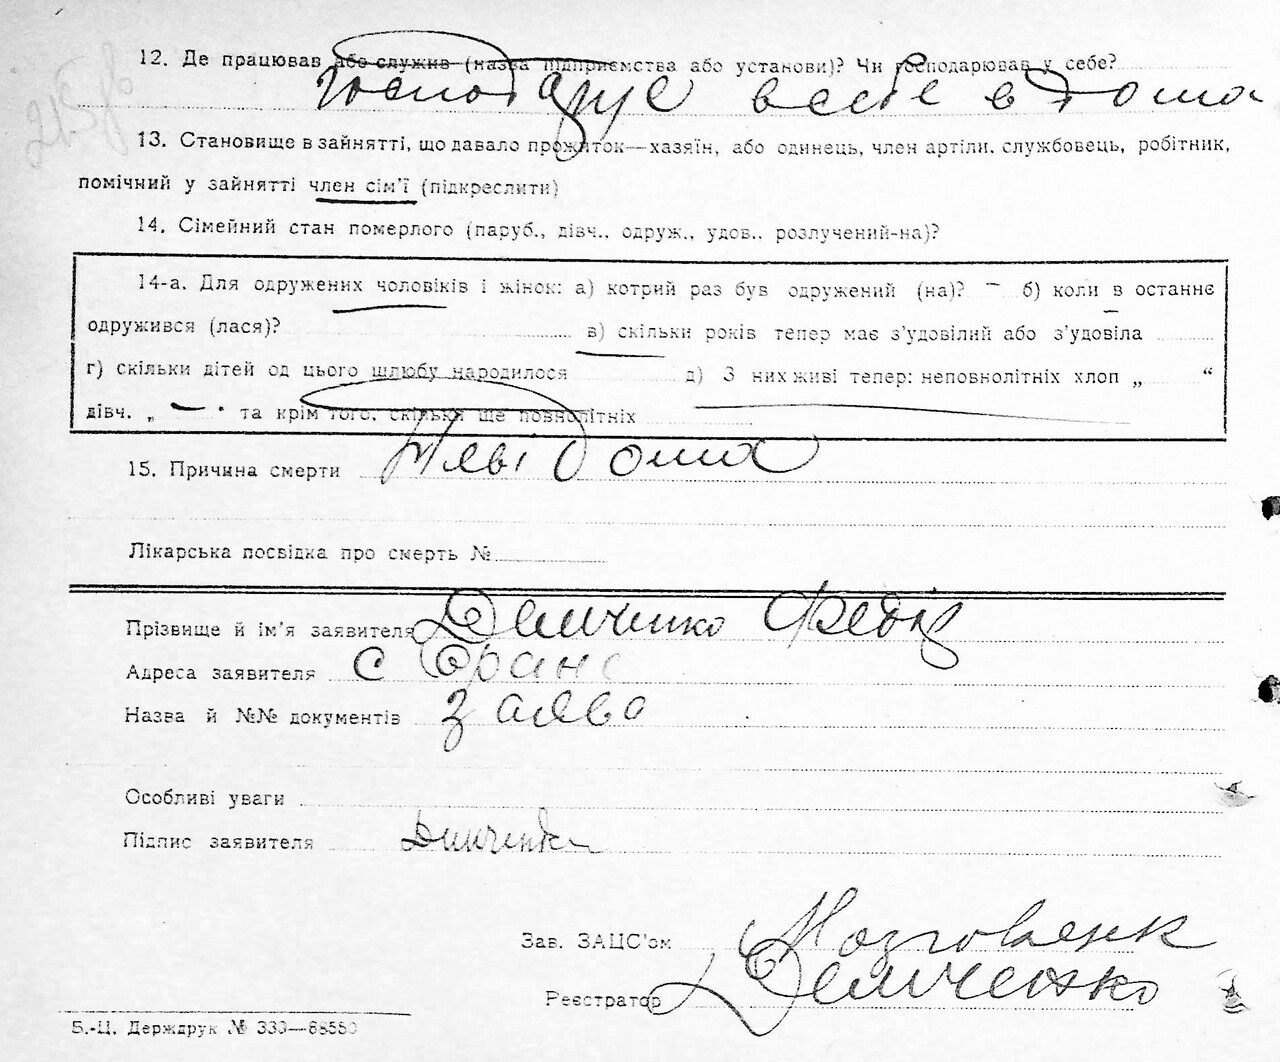 12. Де працював або служив (назва підприємства або установи)? Чи господарював у себе?
Господарує в себе в дома
13. Становище в зайнятті, що давало прожиток—хазяїн, або одинець, член артіли, службовець, робітник,
помічний у зайнятті член сім'ї (підкреслити)
14. Сімейний стан померлого (паруб., дівч., одруж., удов., розлучений-на)?
14-а. Для одружених чоловіків і жінок: а) котрий раз був одружений (на)? — б) коли в останнє
одружився (лася)? в) скільки років тепер має з'удовілий або з'удовіла
г) скільки дітей од цього шлюбу народилося д) З них живі тепер: неповнолітніх хлоп „ “
дівч. „ — " та крім того, скільки ще повнолітніх
15. Причина смерти Невідома
Лікарська посвідка про смерть №
Прізвище й ім'я заявителя Демченко Федір
Адреса заявителя с
Назва й №№ документів заява
Особливі уваги
Підпис заявителя Демченко
Зав. ЗАЦС'ом
Реєстратор Демченко
Б.-Ц. Держдрук №